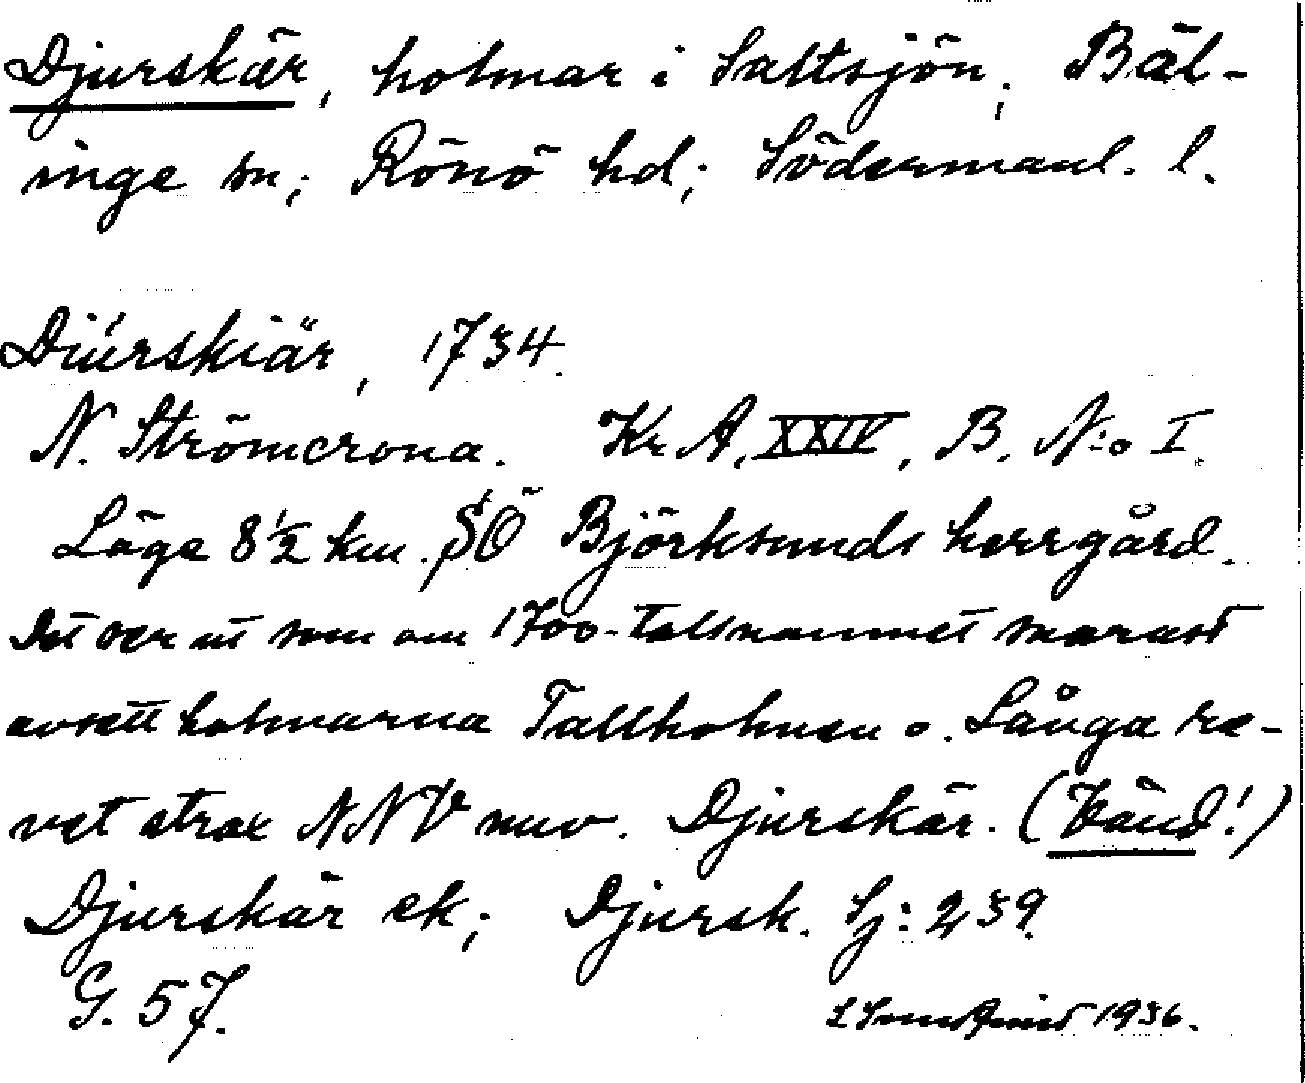 Djurskär, holmar i Saltsjön; Bäl-
inge sn; Rönö hd; Södermanl. l.
Diurskiär, 1734.
N. Strömcrona. Kr A, XXIV, B. N:o I.
Läge 8 1/2 km. SÖ Björksunds herrgård.
Det ser ut som om 1700-talsnamnet snarast
avsett holmarna Tallholmen o. Långa re-
vet strax NNV nuv. Djurskär. (Vänd!)
Djurskär ek; Djursk. Sj: 239.
G. 57.
1936.